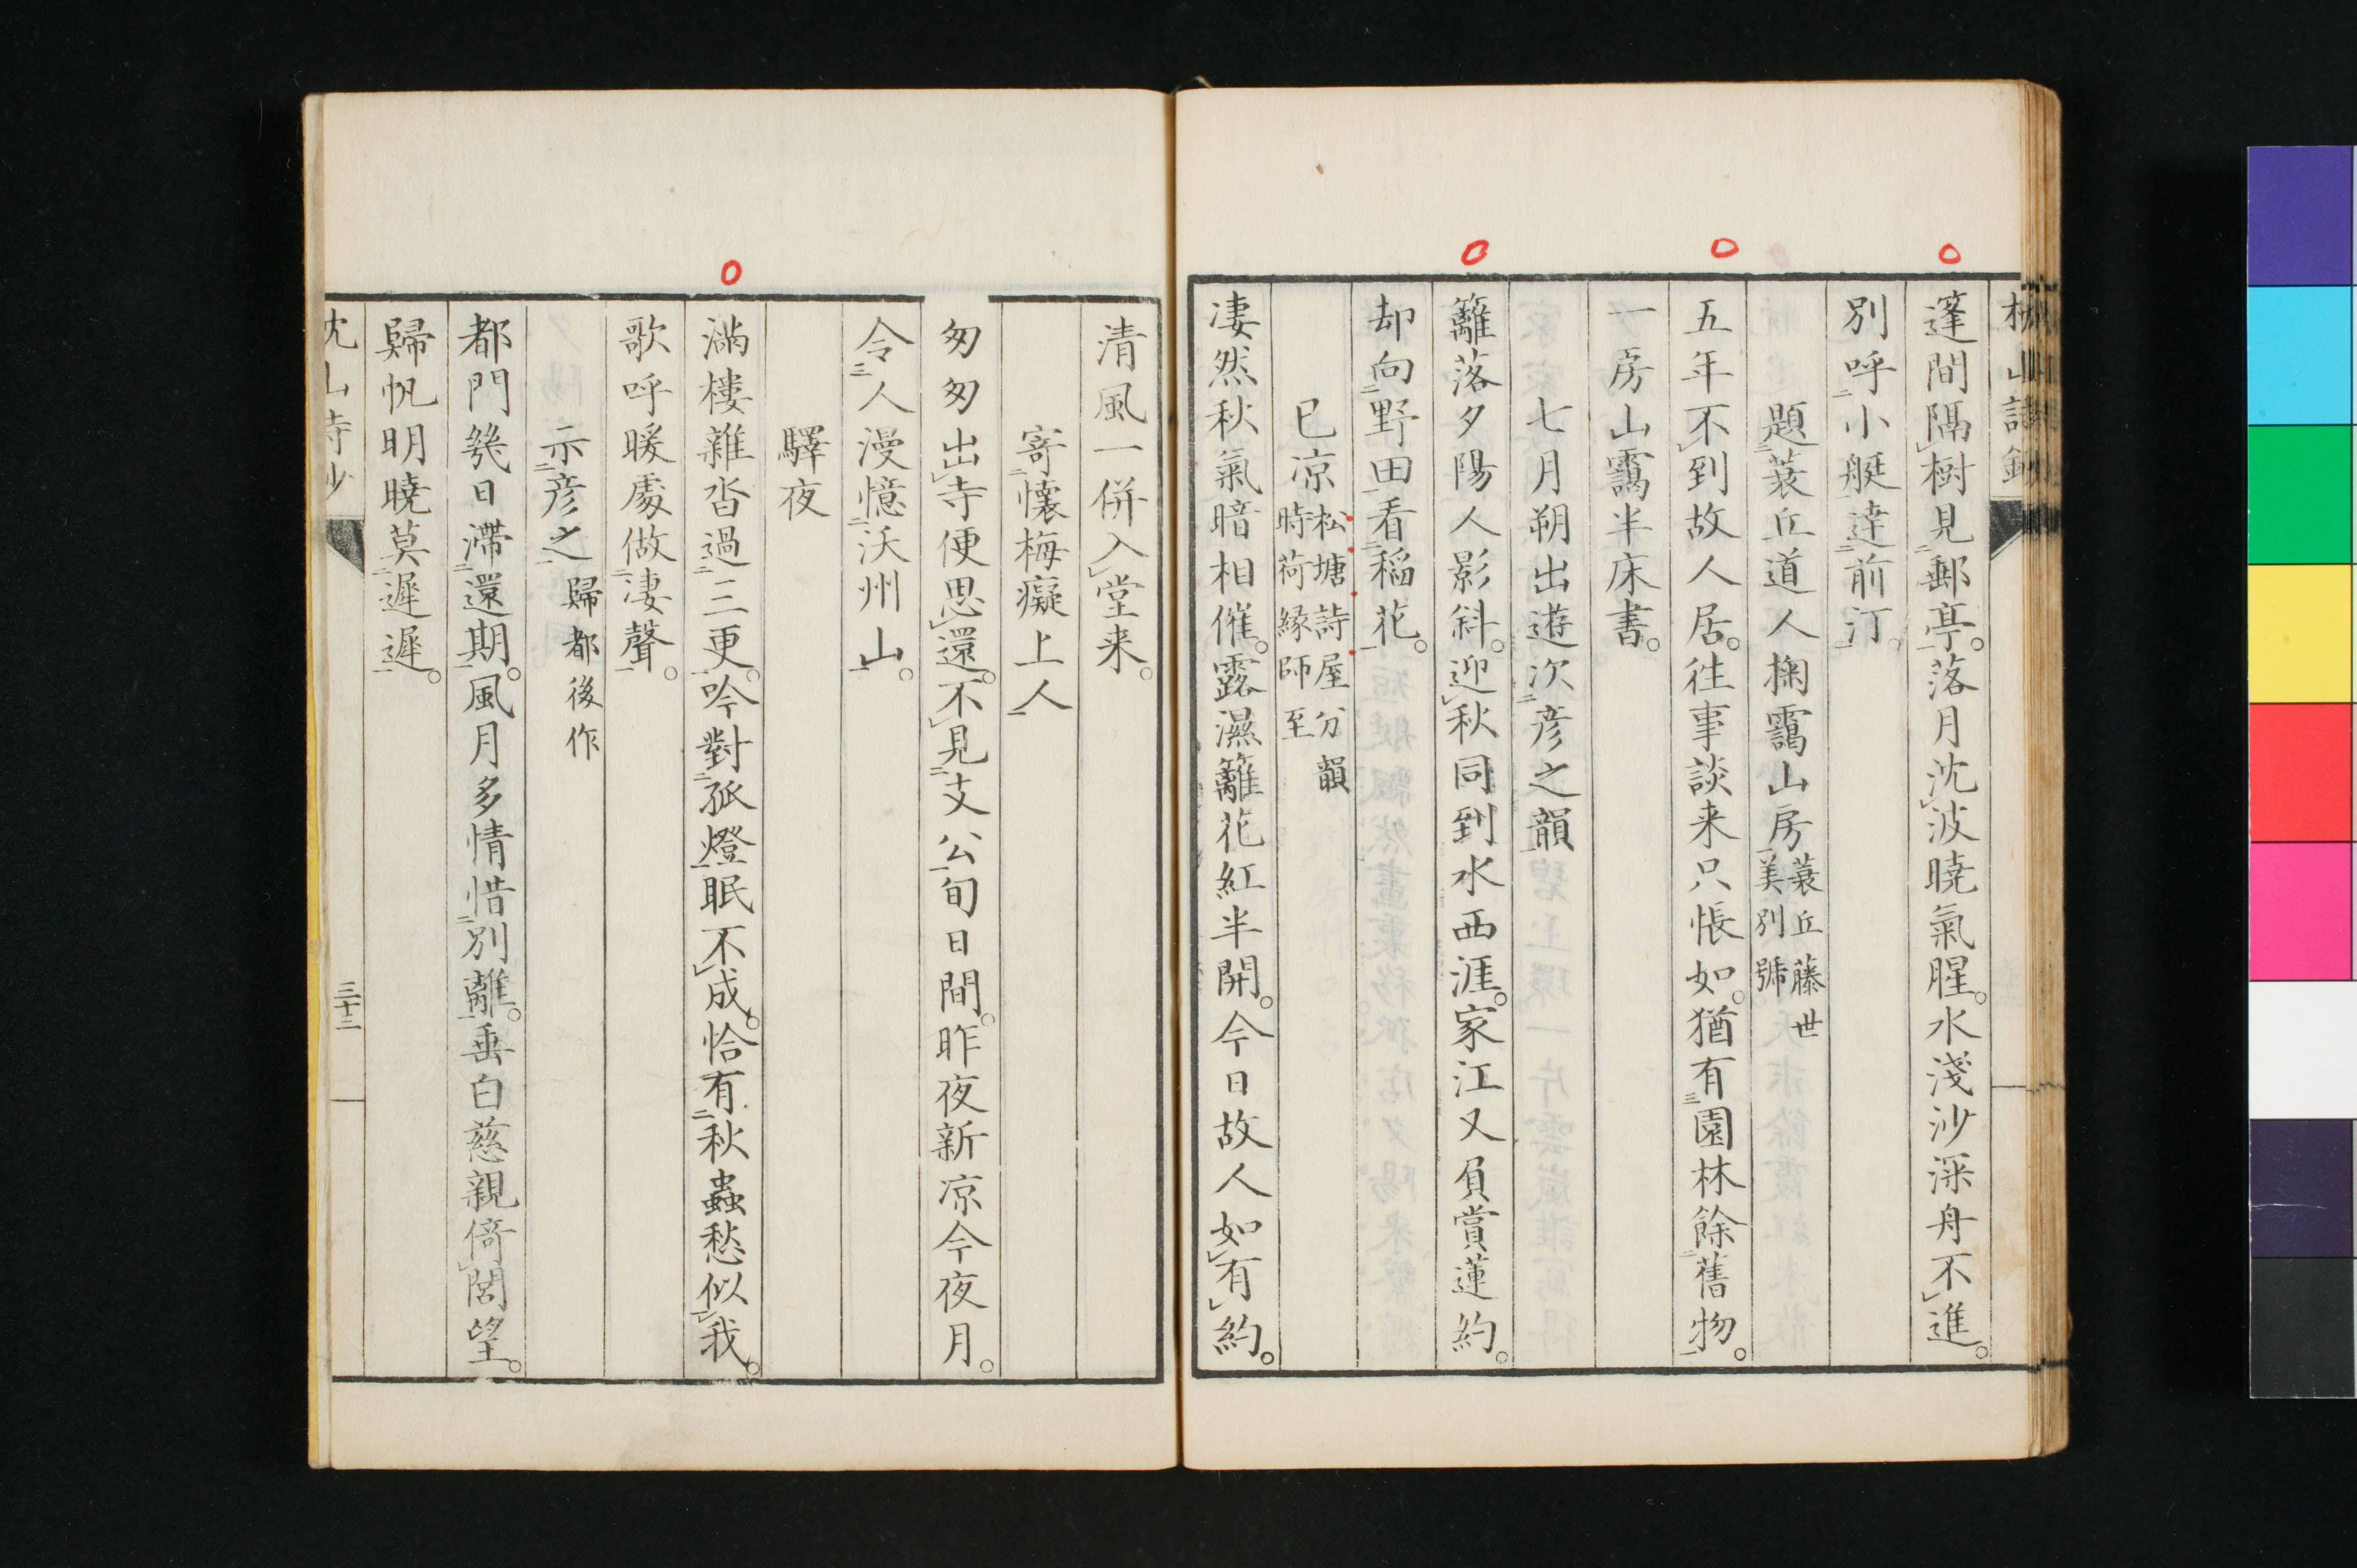 篷間隔樹見郵亭。落月沈波曉氣腥。水淺沙深舟不進。
別呼小艇達前汀。
題蓑丘道人掬靄山房 蓑丘藤世美別號
五年不到故人居。往事談来只悵如。猶有園林餘舊物。
一房山靄半床書。
七月朔出遊次彦之韻
籬落夕陽人影斜。迎秋同到水西涯。家江又負賞蓮約。
却向野田看稲花。
已凉 松塘詩屋分韻時荷緑師至
凄然秋氣暗相催。露濕籬花紅半開。今日故人如有約。
清風一併入堂来。
寄懐梅癡上人
匆匆出寺便思還。不見支公旬日間。昨夜新凉今夜月。
令人漫憶沃州山。
驛夜
満樓雜沓過三更。吟對孤燈眠不成。恰有秋蟲愁似我。
歌呼暖處做凄聲。
示彦之 歸都後作
都門幾日滯還期。風月多情惜別離。垂白慈親倚閭望。
歸帆明曉莫遲遲。
三十二